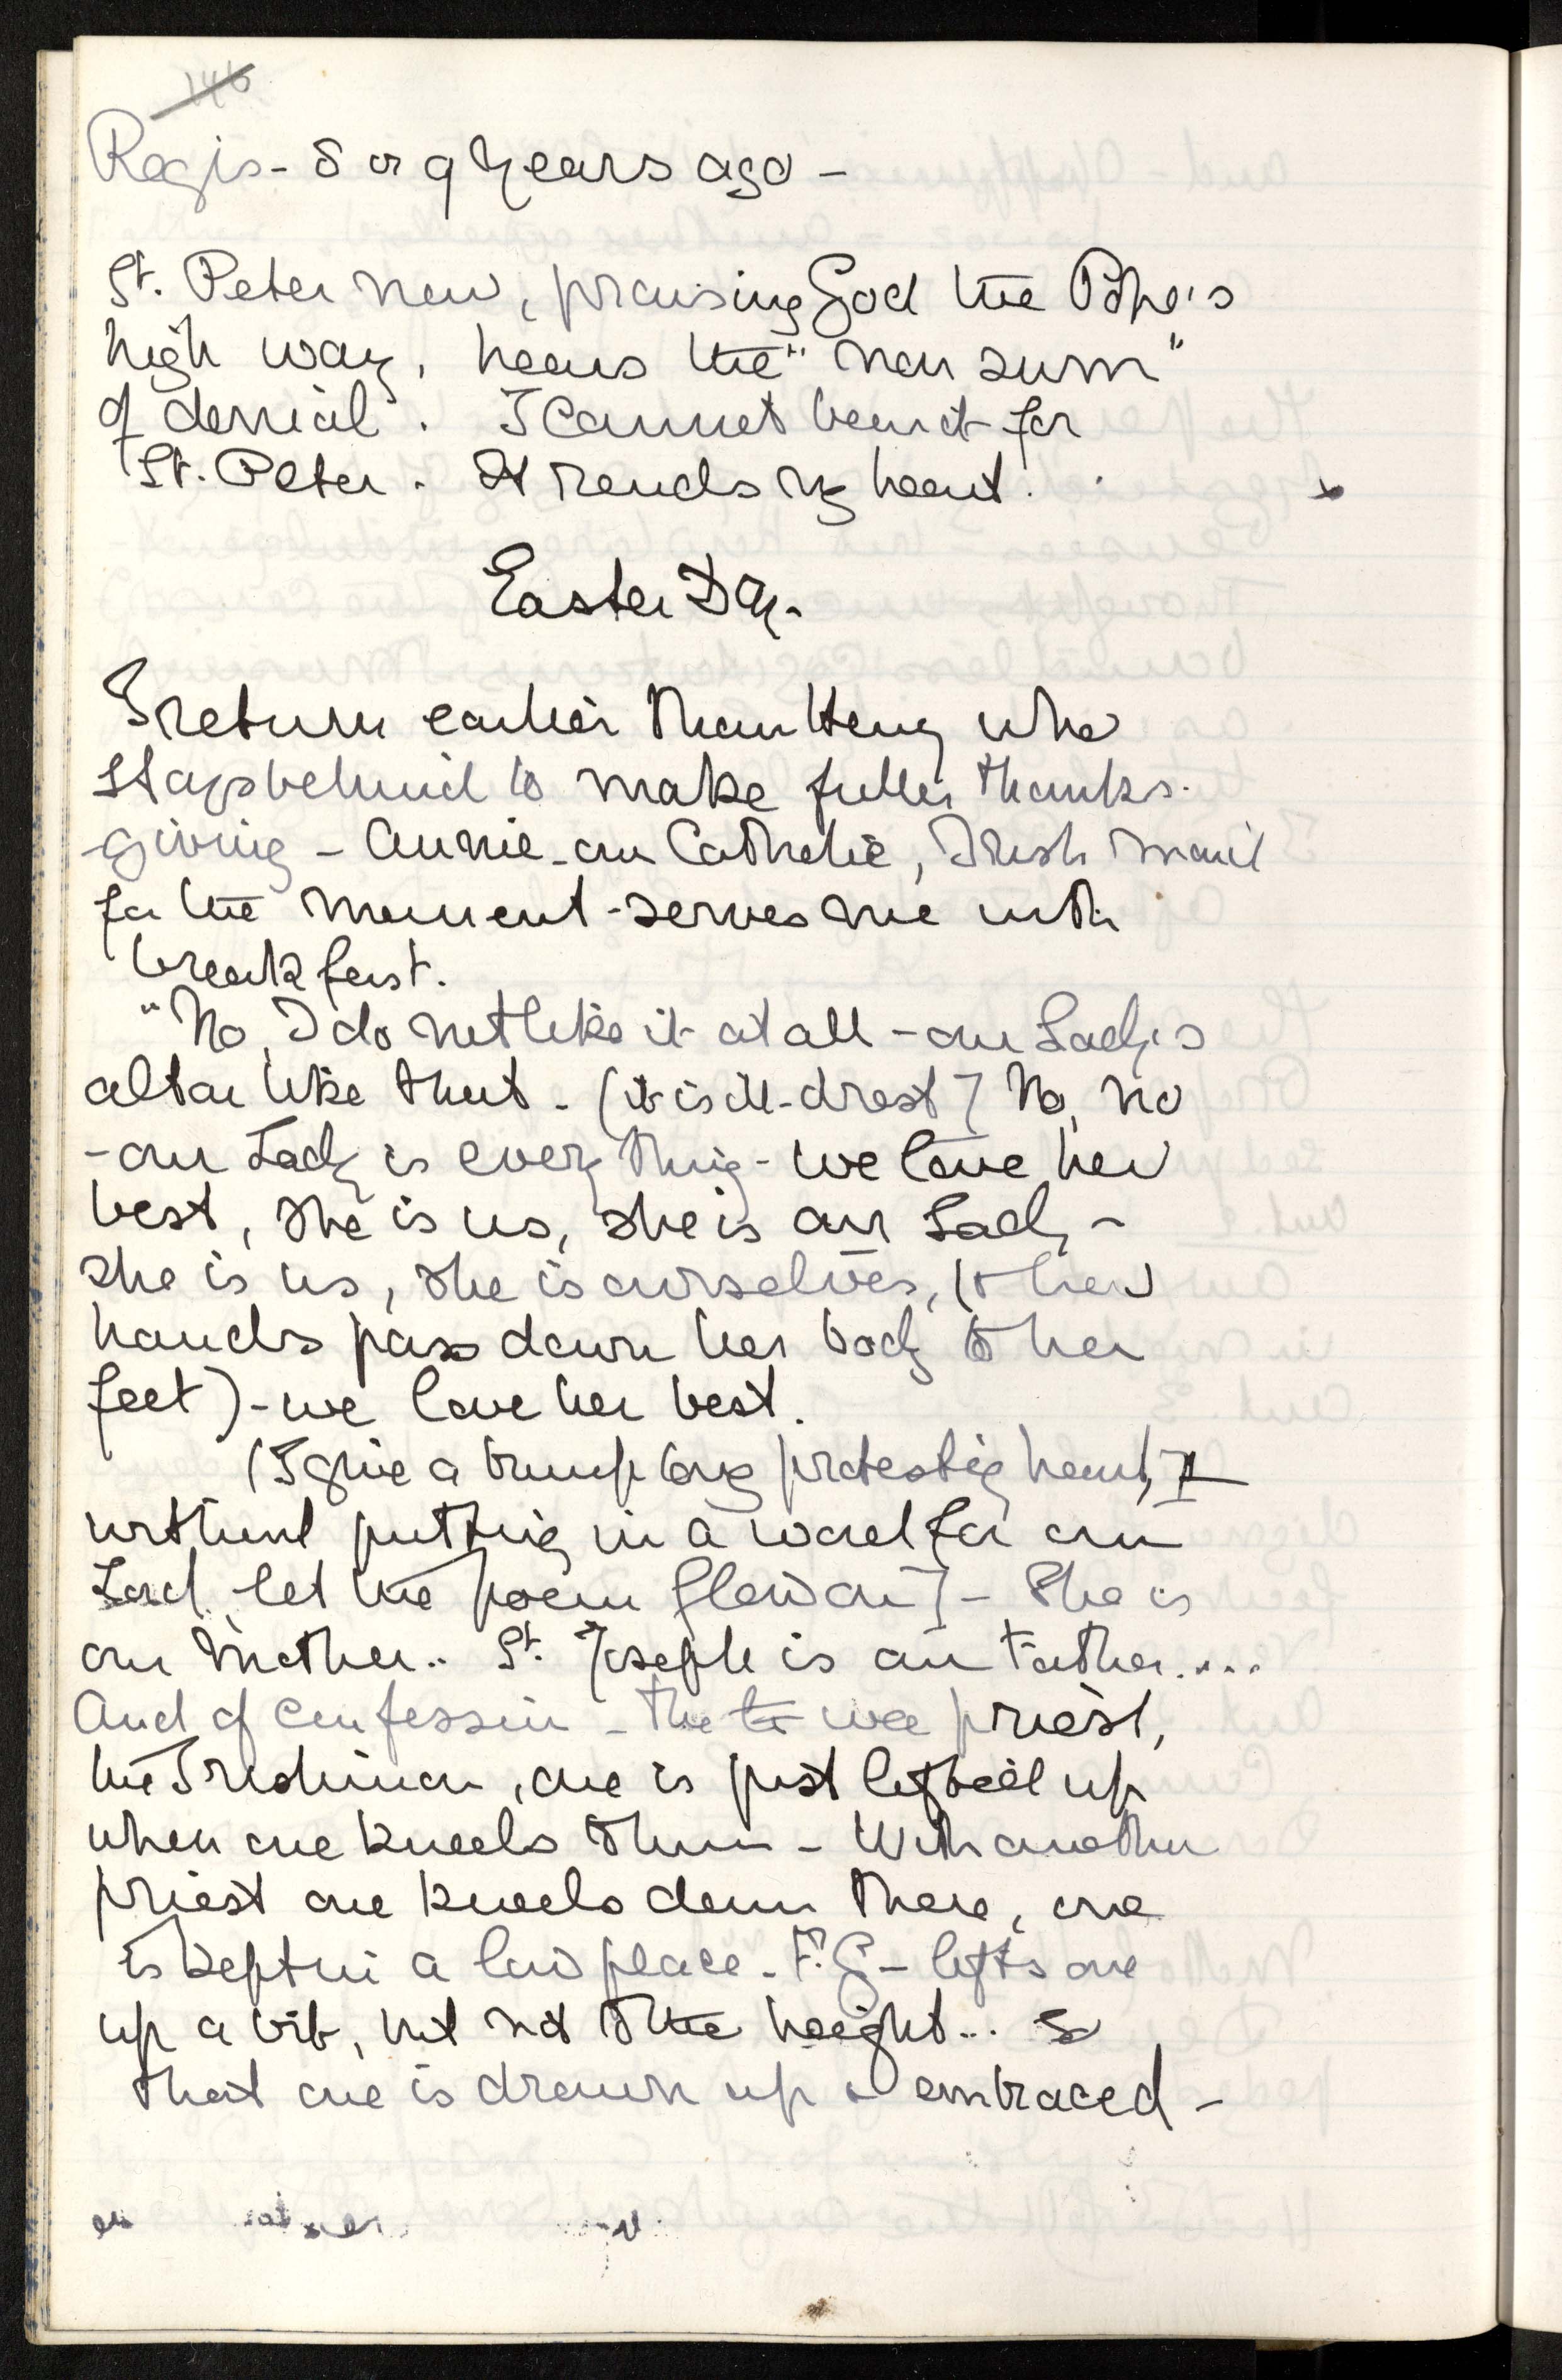 146
Regis - 8 or 9 years ago -
St. Peter now, praising God the Pope's
high way, hears the "non sum"
of denial. I cannot bear it for
St. Peter. It rends my heart.
Easter Day.
I return earlier than Henry who
stays behind to make fuller thanks-
giving - Annie - our Catholic, Irish maid
for the moment - serves me with
breakfast.
"No, I do not like it at all - our Lady's
altar like that - (it is ill-drest] No, no
- our Lady is everything - we love her
best, she is us, she is our Lady -
she is us, she is ourselves, (& her
hands pass down her body to her
feet) - we love her best.
(I give a bump to my protesting heart, &
without putting in a word for our
Lord let the poem flow on] - She is
our Mother.. St. Joseph is our Father....
And of Confession - the to wee priest,
the Irishman, one is just lifted up
when one kneels to him - With another
priest one kneels down there, one
is kept in a low place - F. G - lifts one
up a bit, but not to the height... so
that one is drawn up & embraced -